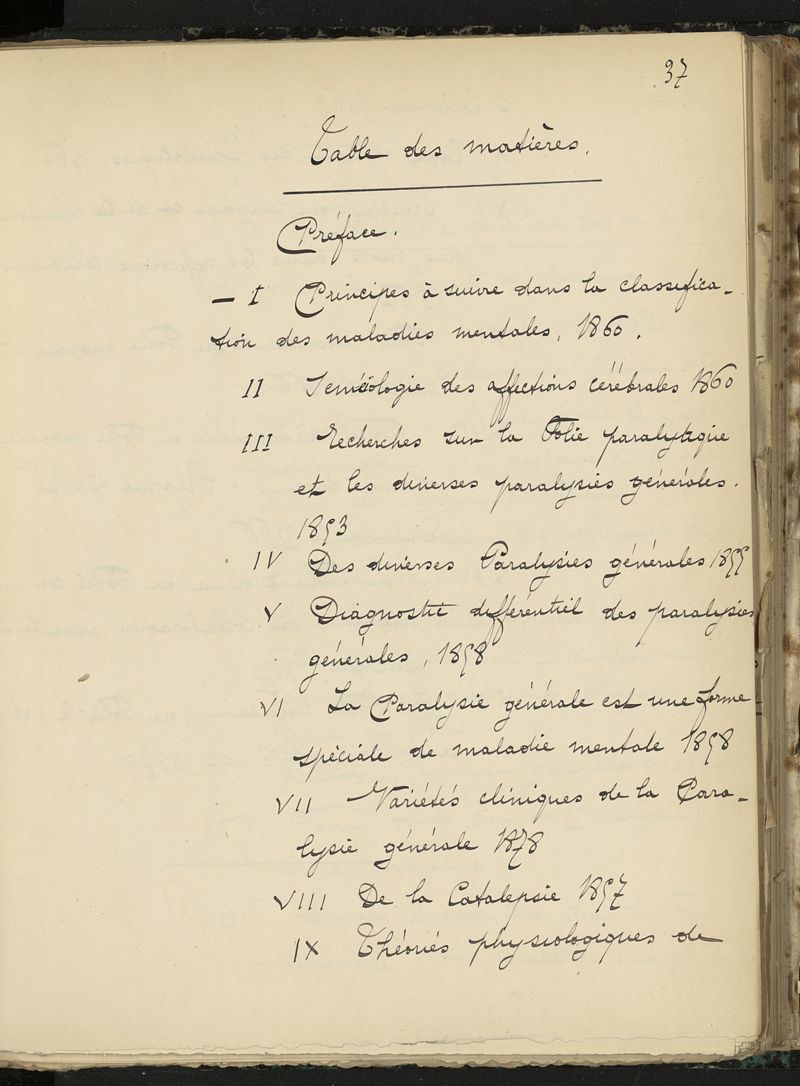 37
Table des matières.
Préface.
— I Principes à suivre dans la classifica-
tion des maladies mentales, 1860.
II Séméiologie des affections cérébrales 1860
III Recherches sur la Folie paralytique
et les diverses paralysies générales.
1853
IV Des diverses Paralysies générales 1855
V Diagnostic différentiel des paralysies
générales, 1858
VI La Paralysie générale est une forme
spéciale de maladie mentale 1858
VII Variétés cliniques de la Para-
lysie générale 1878
VIII De la Catalepsie 1857
IX Théories physiologiques de